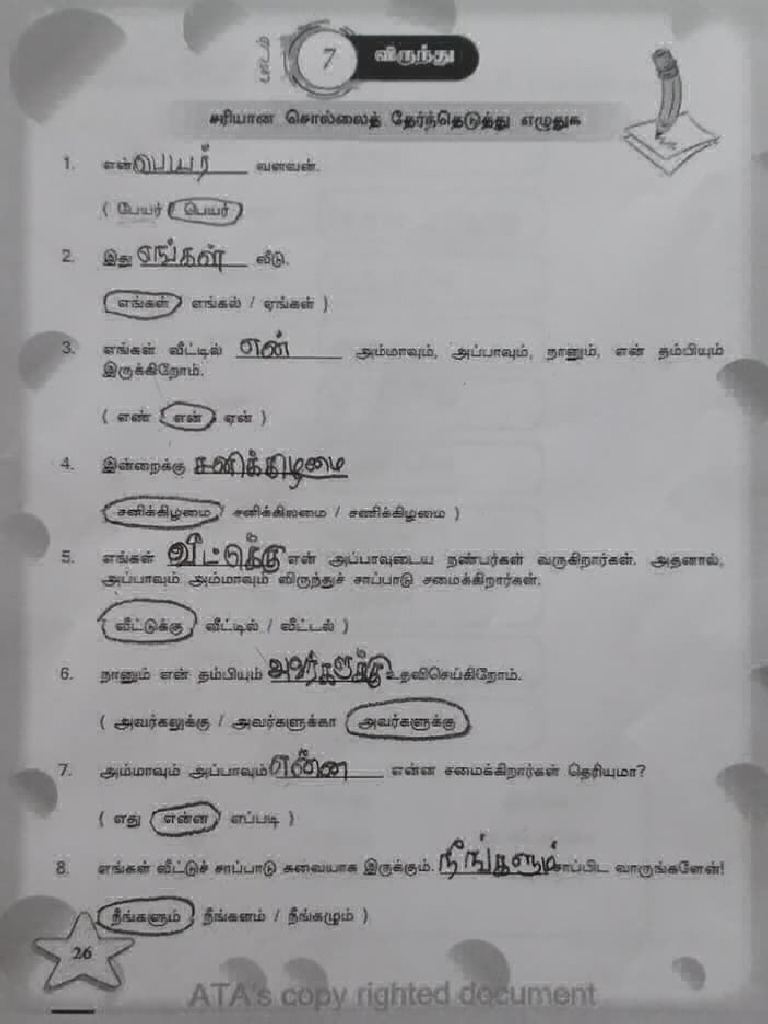 பாடம்
7 விருந்து
சரியான சொல்லைத் தேர்ந்தெடுத்து எழுதுக
1. என் பெயர் வளவன்.
( பேயர் / பெயர் )
2. இது எங்கள் வீடு.
( எங்கள் / எங்கல் / ஏங்கள் )
3. எங்கள் வீட்டில் என் அம்மாவும், அப்பாவும், நானும், என் தம்பியும்
இருக்கிறோம்.
( எண் / என் / ஏன் )
4. இன்றைக்கு சனிக்கிழமை
( சனிக்கிழமை / சனிக்கிலமை / சணிக்கிழமை )
5. எங்கள் வீட்டுக்கு என் அப்பாவுடைய நண்பர்கள் வருகிறார்கள். அதனால்,
அப்பாவும் அம்மாவும் விருந்துச் சாப்பாடு சமைக்கிறார்கள்.
( வீட்டுக்கு / வீட்டில் / வீட்டல் )
6. நானும் என் தம்பியும் அவர்களுக்கு உதவிசெய்கிறோம்.
( அவர்கலுக்கு / அவர்களுக்கா / அவர்களுக்கு )
7. அம்மாவும் அப்பாவும் என்ன என்ன சமைக்கிறார்கள் தெரியுமா?
( எது / என்ன / எப்படி )
8. எங்கள் வீட்டுச் சாப்பாடு சுவையாக இருக்கும். நீங்களும் சாப்பிட வாருங்களேன்!
( நீங்களும் / நீங்களம் / நீங்கழும் )
26
ATA's copy righted document